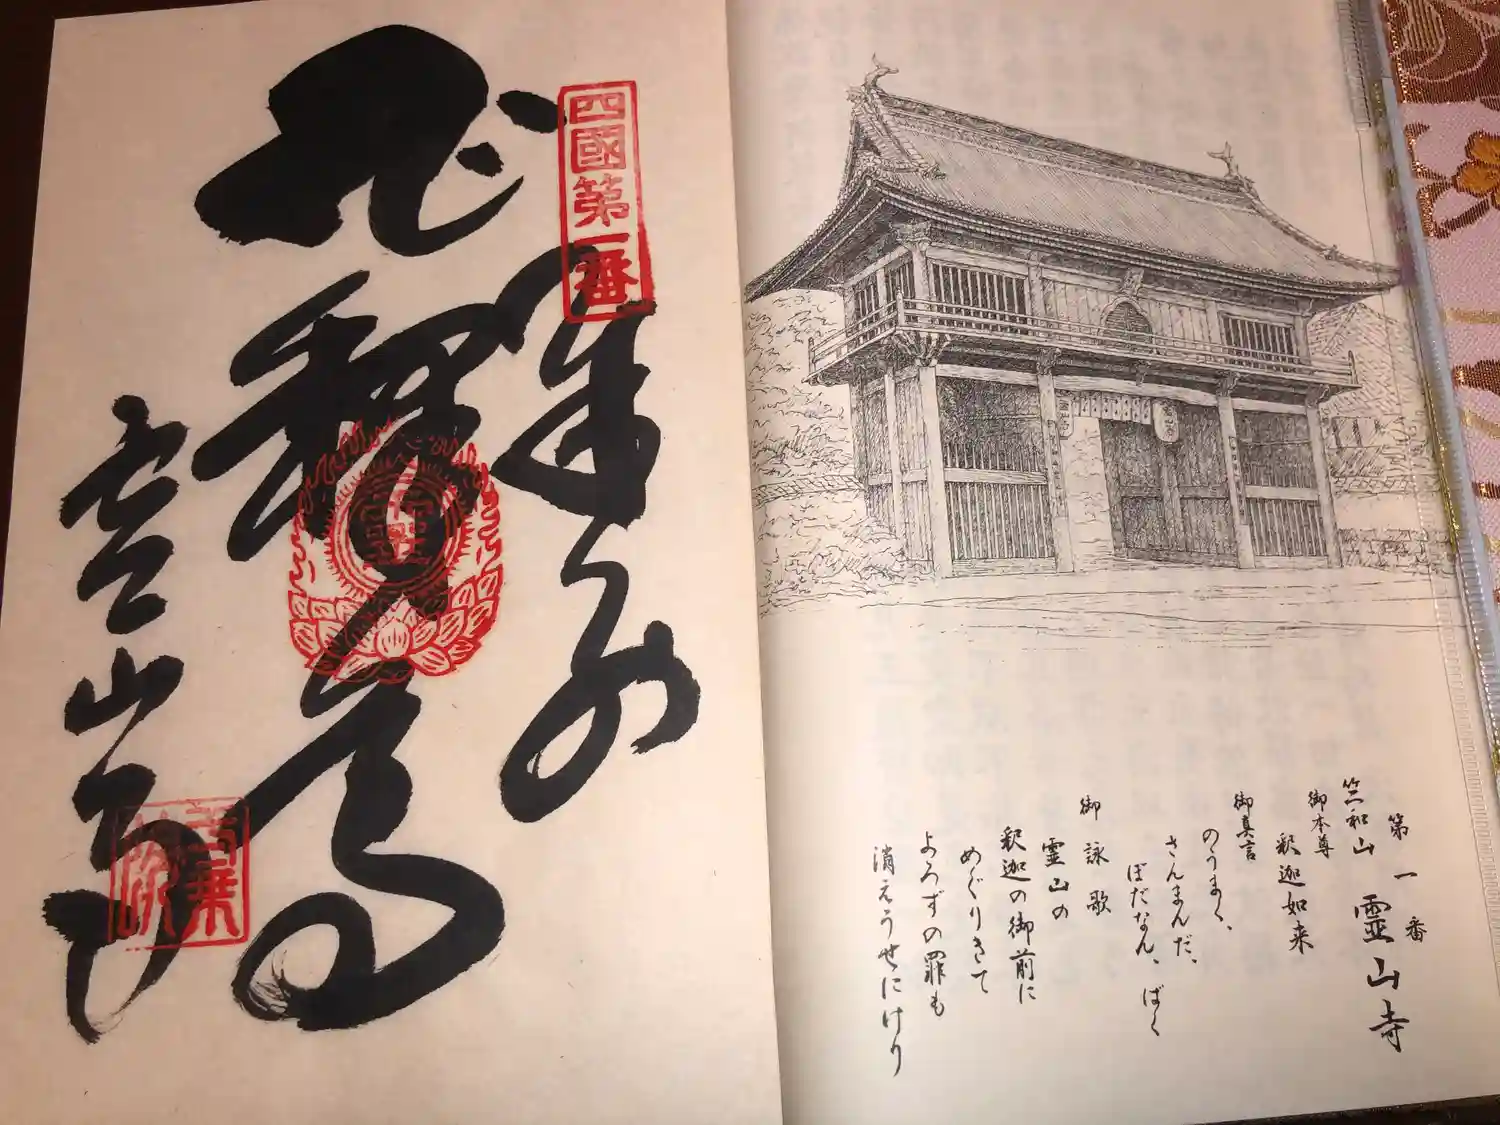 第一番
竺和山 霊山寺
御本尊
釈迦如来
御真言
のうまく、
さんまんだ、
ぼだなん、ばく
御詠歌
霊山の
釈迦の御前に
めぐりきて
よろずの罪も
消えうせにけり
四國第一番
奉納
霊山寺